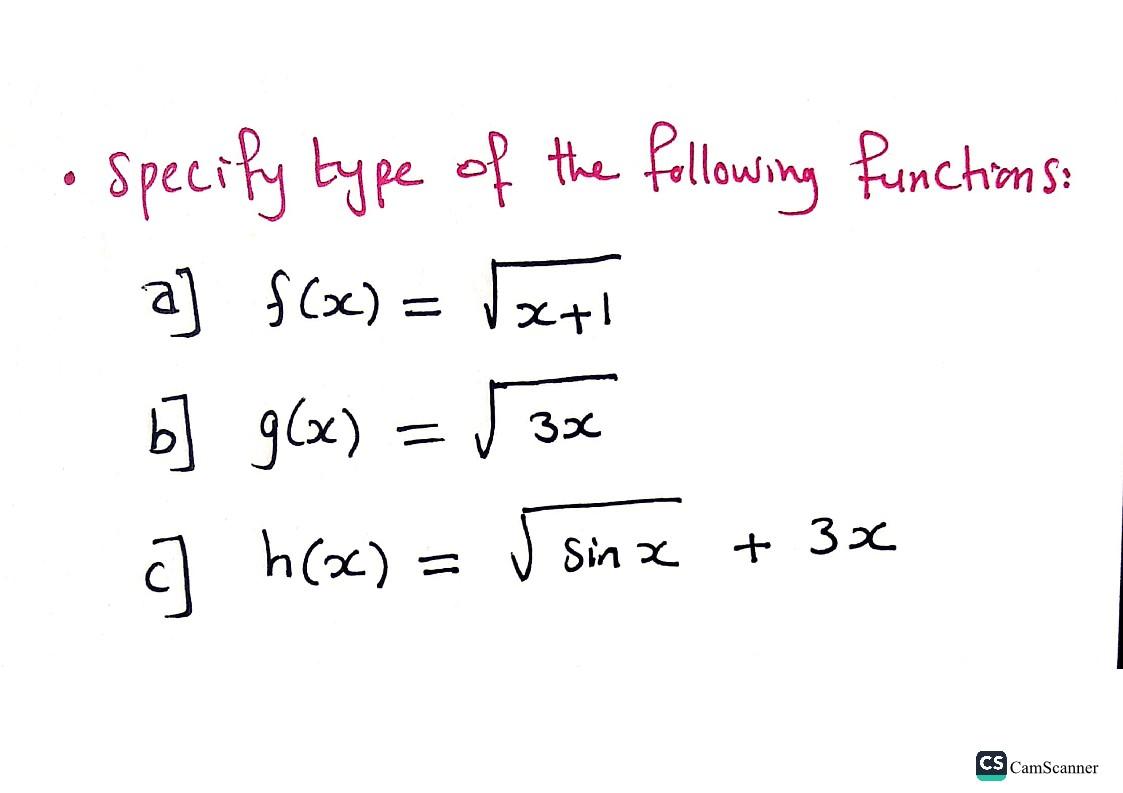 • Specify type of the following functions:
a] f(x) = √x+1
b] g(x) = √3x
c] h(x) = √sin x + 3x
CS CamScanner